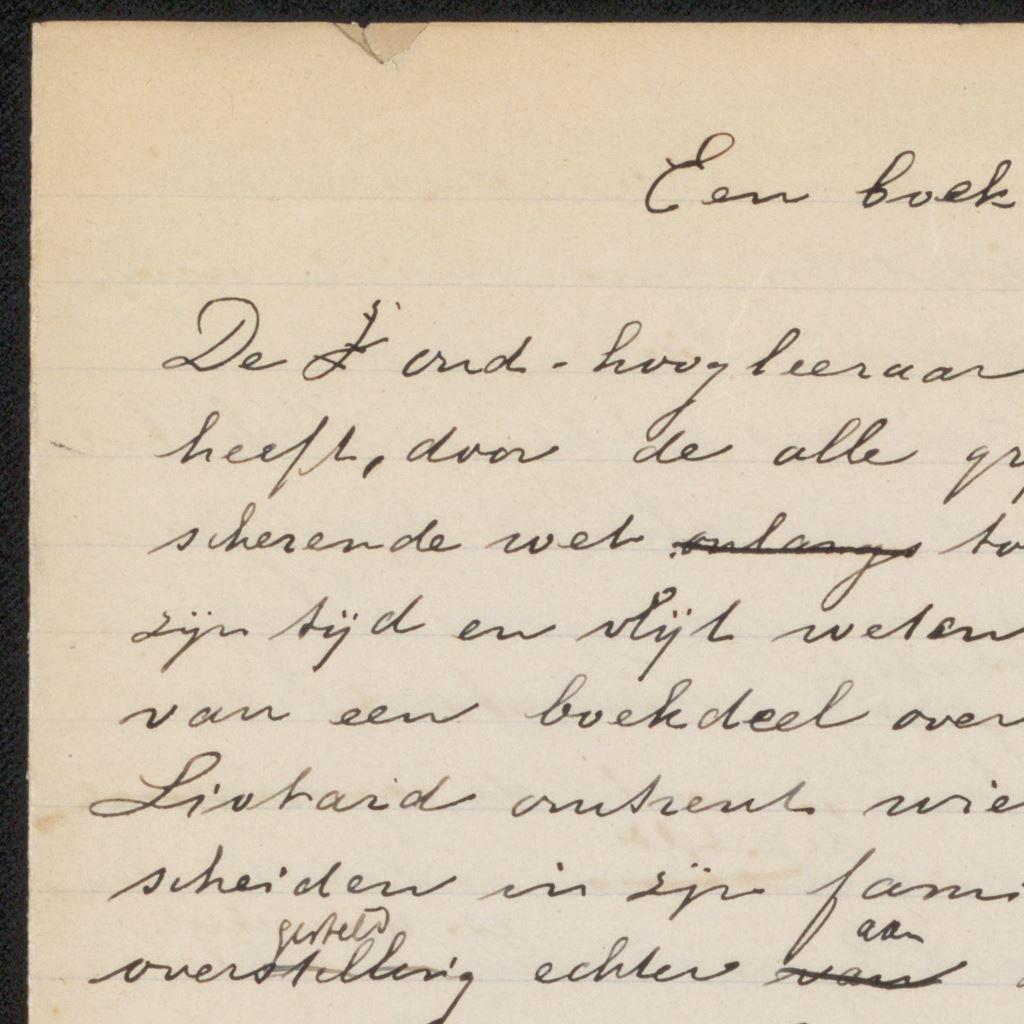 Een boek
De oud-hoogleeraar
heeft, door de alle
scherende wet onlangs
zijn tijd en vlijt weten
van een boekdeel over
Liotard omtrent wie
scheiden in zijn fami
gesteld aan
overstelling echter van